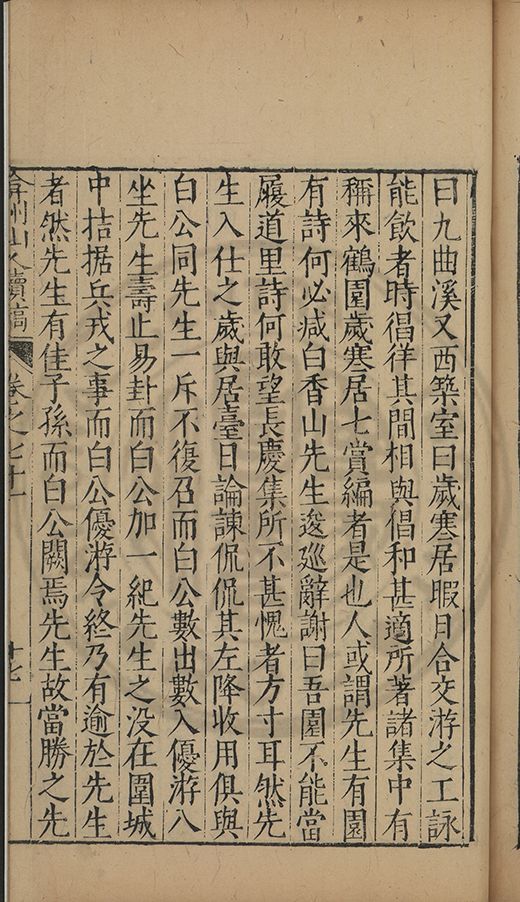 曰九曲溪又西築室曰歲寒居暇日合交游之工詠
能飲者時倡徉其間相與倡和甚適所著諸集中有
稱來鶴園歲寒居七賞編者是也人或謂先生有園
有詩何必減白香山先生逡廵辭謝曰吾園不能當
履道里詩何敢望長慶集所不甚愧者方寸耳然先
生入仕之歲與居臺日論諫侃侃其左降收用俱與
白公同先生一斥不復召而白公數出數入優游八
坐先生壽止易卦而白公加一紀先生之没在圍城
中拮据兵戎之事而白公優游令終乃有逾於先生
者然先生有佳子孫而白公闕焉先生故當勝之先
弇州山人續稿 卷之七十一 十七